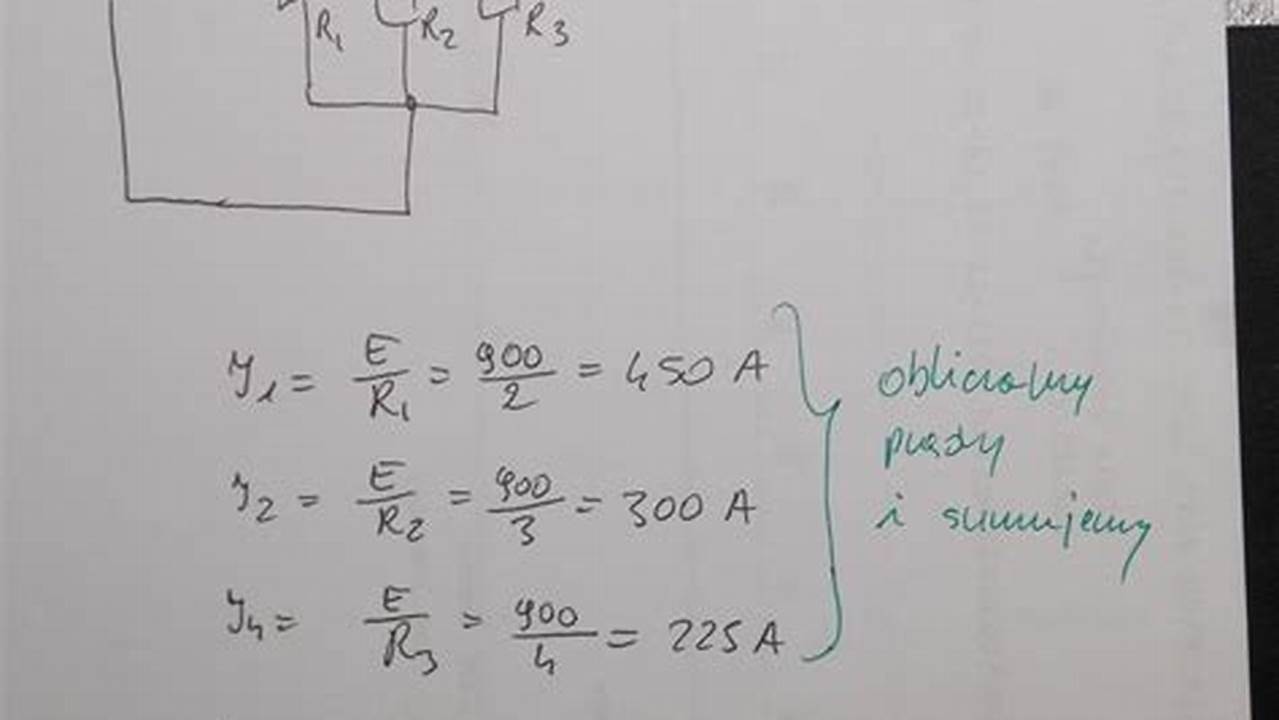 R₁ R₂ R₃
I₁ = E/R₁ = 900/2 = 450 A
I₂ = E/R₂ = 900/3 = 300 A
I₄ = E/R₃ = 900/4 = 225 A
obliczamy
prądy
i sumujemy